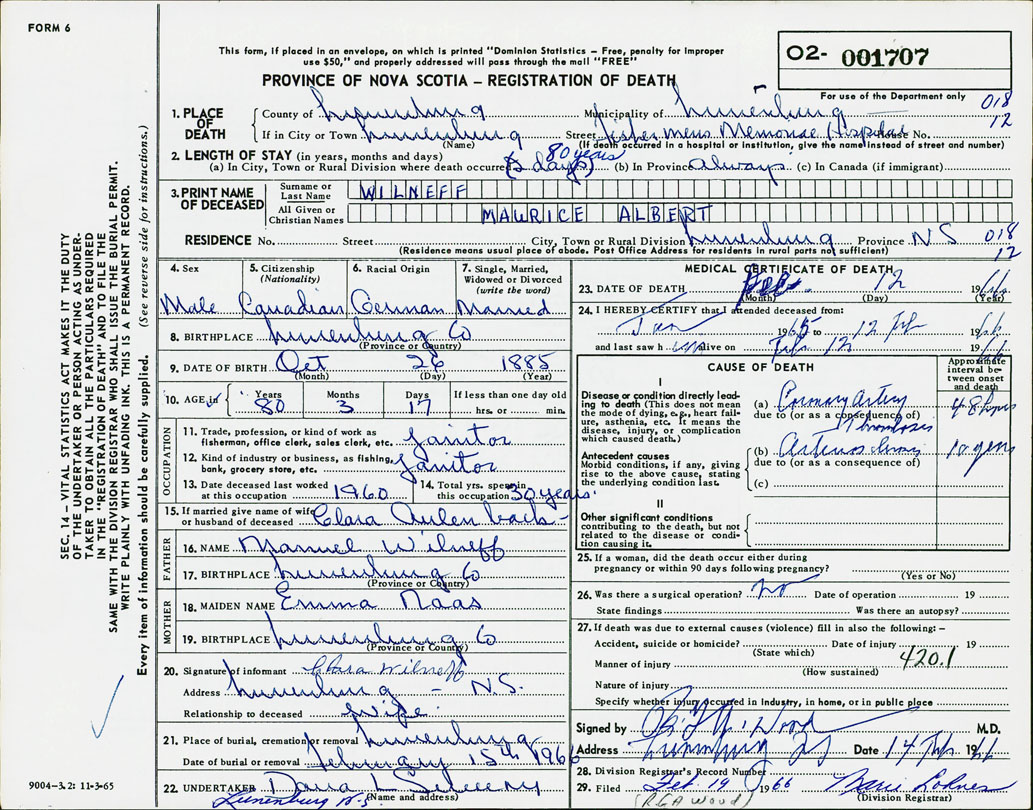 FORM 6
This form, if placed in an envelope, on which is printed "Dominion Statistics – Free, penalty for improper
use $50," and properly addressed will pass through the mail "FREE"
PROVINCE OF NOVA SCOTIA – REGISTRATION OF DEATH
02- 001707
For use of the Department only
018
12
1. PLACE OF DEATH
County of Lunenburg Municipality of Lunenburg
If in City or Town Lunenburg Street Fishermens Memorial Hospital House No.
(Name) (If death occurred in a hospital or institution, give the name instead of street and number)
2. LENGTH OF STAY (in years, months and days) 80 years
(a) In City, Town or Rural Division where death occurred (2 days) (b) In Province always (c) In Canada (if immigrant)
3. PRINT NAME OF DECEASED
Surname or Last Name WILNEFF
All Given or Christian Names MAURICE ALBERT
RESIDENCE No. Street City, Town or Rural Division Lunenburg Province N S 018
(Residence means usual place of abode. Post Office Address for residents in rural parts not sufficient) 12
4. Sex 5. Citizenship (Nationality) 6. Racial Origin 7. Single, Married, Widowed or Divorced (write the word)
Male Canadian German Married
8. BIRTHPLACE Lunenburg Co
(Province or Country)
9. DATE OF BIRTH Oct 26 1885
(Month) (Day) (Year)
10. AGE in Years Months Days If less than one day old
80 3 17 hrs. or min.
OCCUPATION
11. Trade, profession, or kind of work as
fisherman, office clerk, sales clerk, etc. Janitor
12. Kind of industry or business, as fishing,
bank, grocery store, etc. Janitor
13. Date deceased last worked
at this occupation 1960
14. Total yrs. spent in
this occupation 30 years
15. If married give name of wife
or husband of deceased Clara Aulenback
FATHER
16. NAME Manuel Wilneff
17. BIRTHPLACE Lunenburg Co
(Province or Country)
MOTHER
18. MAIDEN NAME Emma Naas
19. BIRTHPLACE Lunenburg Co
(Province or Country)
20. Signature of informant Clara Wilneff
Address Lunenburg - N.S.
Relationship to deceased wife
21. Place of burial, cremation or removal Lunenburg
Date of burial or removal February 15th 1966
22. UNDERTAKER Dana L
(Name and address)
Lunenburg N.S.
MEDICAL CERTIFICATE OF DEATH
23. DATE OF DEATH Feb. 12 1966
(Month) (Day) (Year)
24. I HEREBY CERTIFY that I attended deceased from:
Jan 1965 to 12 Feb 1966
and last saw h im alive on Feb 12 1966
CAUSE OF DEATH
Approximate interval between onset and death
I
Disease or condition directly leading to death (This does not mean
the mode of dying, e.g., heart failure, asthenia, etc. It means the
disease, injury, or complication
which caused death.)
(a) Coronary Artery 48 hours
due to (or as a consequence of)
Thrombosis
Antecedent causes
Morbid conditions, if any, giving
rise to the above cause, stating
the underlying condition last.
(b) 10 years
due to (or as a consequence of)
(c)
II
Other significant conditions
contributing to the death, but not
related to the disease or condition causing it.
25. If a woman, did the death occur either during
pregnancy or within 90 days following pregnancy?
(Yes or No)
26. Was there a surgical operation? no Date of operation 19
State findings Was there an autopsy?
27. If death was due to external causes (violence) fill in also the following: –
Accident, suicide or homicide? Date of injury 19
(State which)
Manner of injury 420.1
(How sustained)
Nature of injury
Specify whether injury occurred in Industry, in home, or in public place
Signed by Wood M.D.
Address Lunenburg NS Date 14 Feb 1966
28. Division Registrar's Record Number
29. Filed Feb 19 1966 Lohnes
(Division Registrar)
(RGA Wood)
SEC. 14 – VITAL STATISTICS ACT MAKES IT THE DUTY
OF THE UNDERTAKER OR PERSON ACTING AS UNDER-
TAKER TO OBTAIN ALL THE PARTICULARS REQUIRED
IN THE "REGISTRATION OF DEATH" AND TO FILE THE
SAME WITH THE DIVISION REGISTRAR WHO SHALL ISSUE THE BURIAL PERMIT.
WRITE PLAINLY WITH UNFADING INK. THIS IS A PERMANENT RECORD.
Every item of information should be carefully supplied. (See reverse side for instructions.)
9004-3.2: 11-3-65